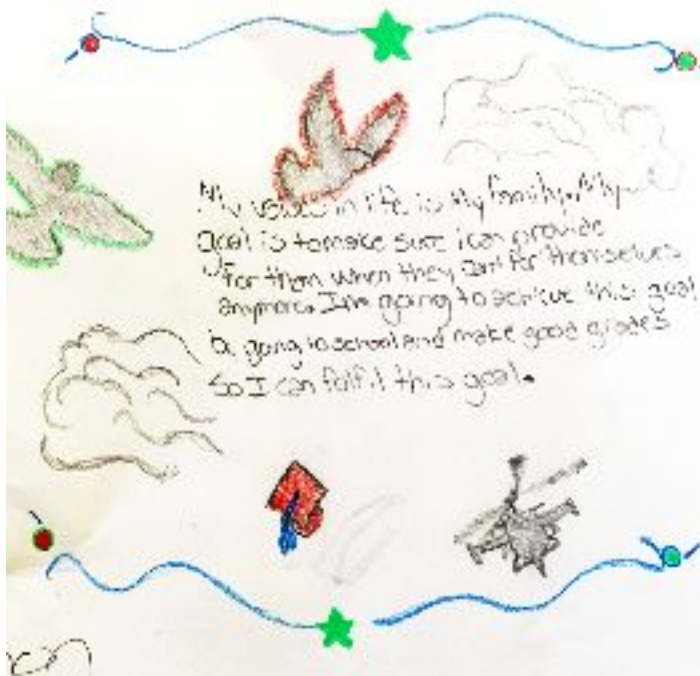 My value in life is My family. My
goal is to make sure i can provide
for them when they cant for themselves
anymore. Im going to achive this goal
by going to school and make good grades
So I can fulfil this goal.